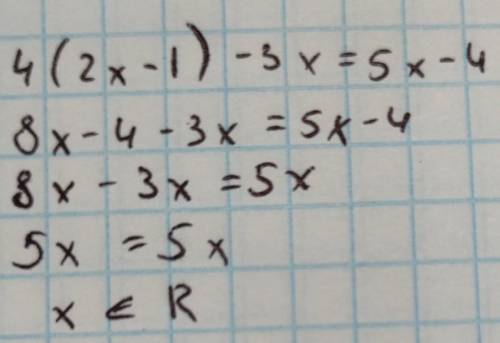 4(2x-1)-3x=5x-4
8x-4-3x=5x-4
8x-3x=5x
5x=5x
x∈R